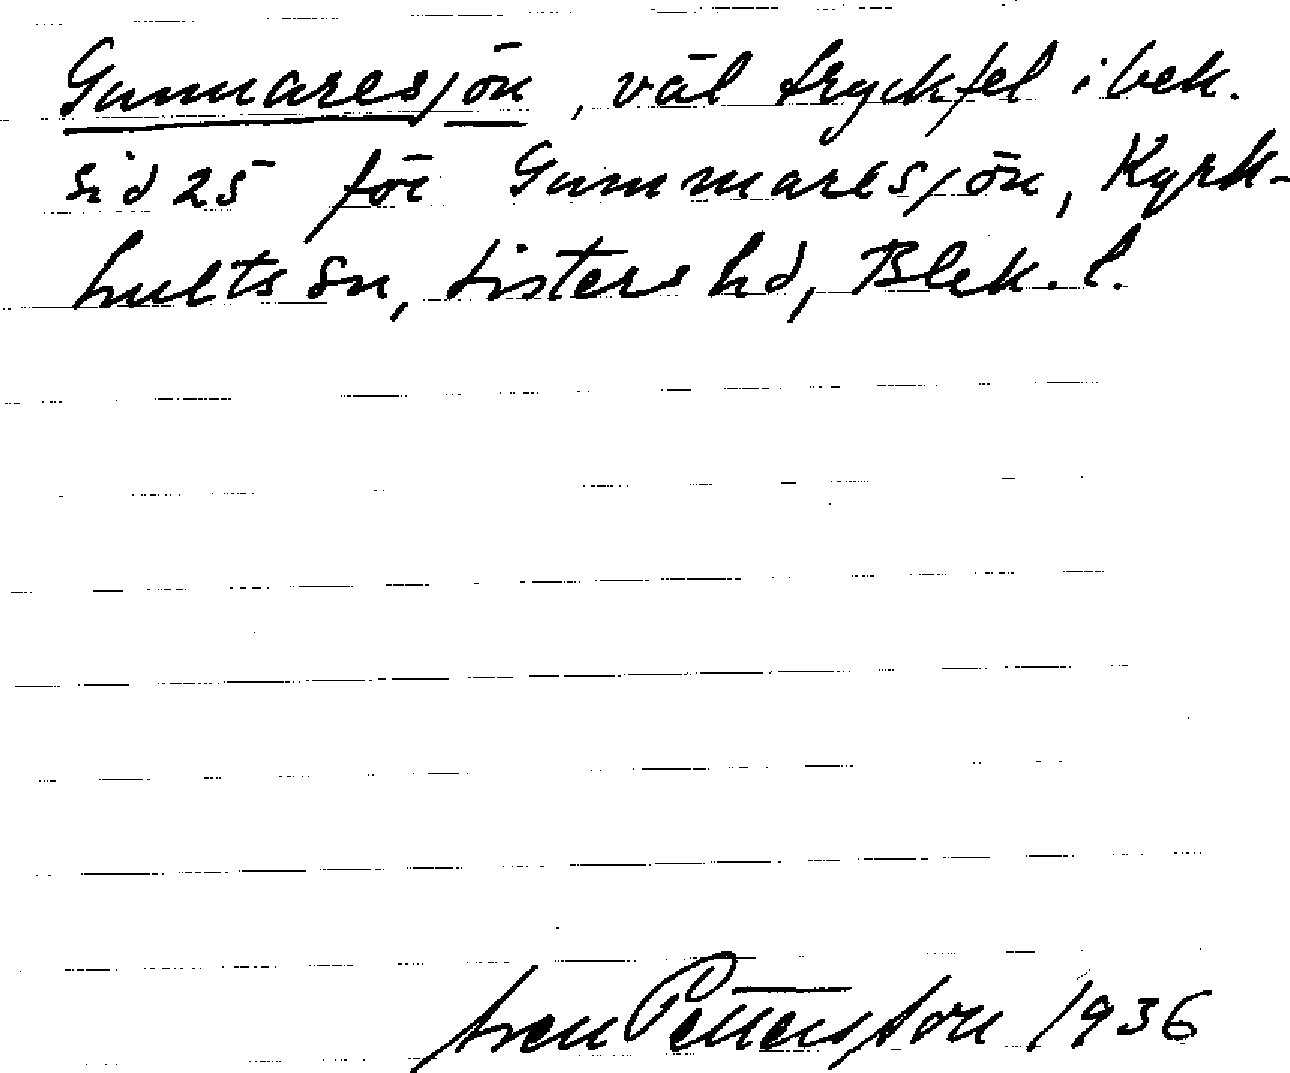 Gunnaresjön, väl tryckfel i bek.
sid 25 för Gummaresjön, Kyrk-
hults sn, Listers hd, Blek. l.
Sven Pettersson 1936